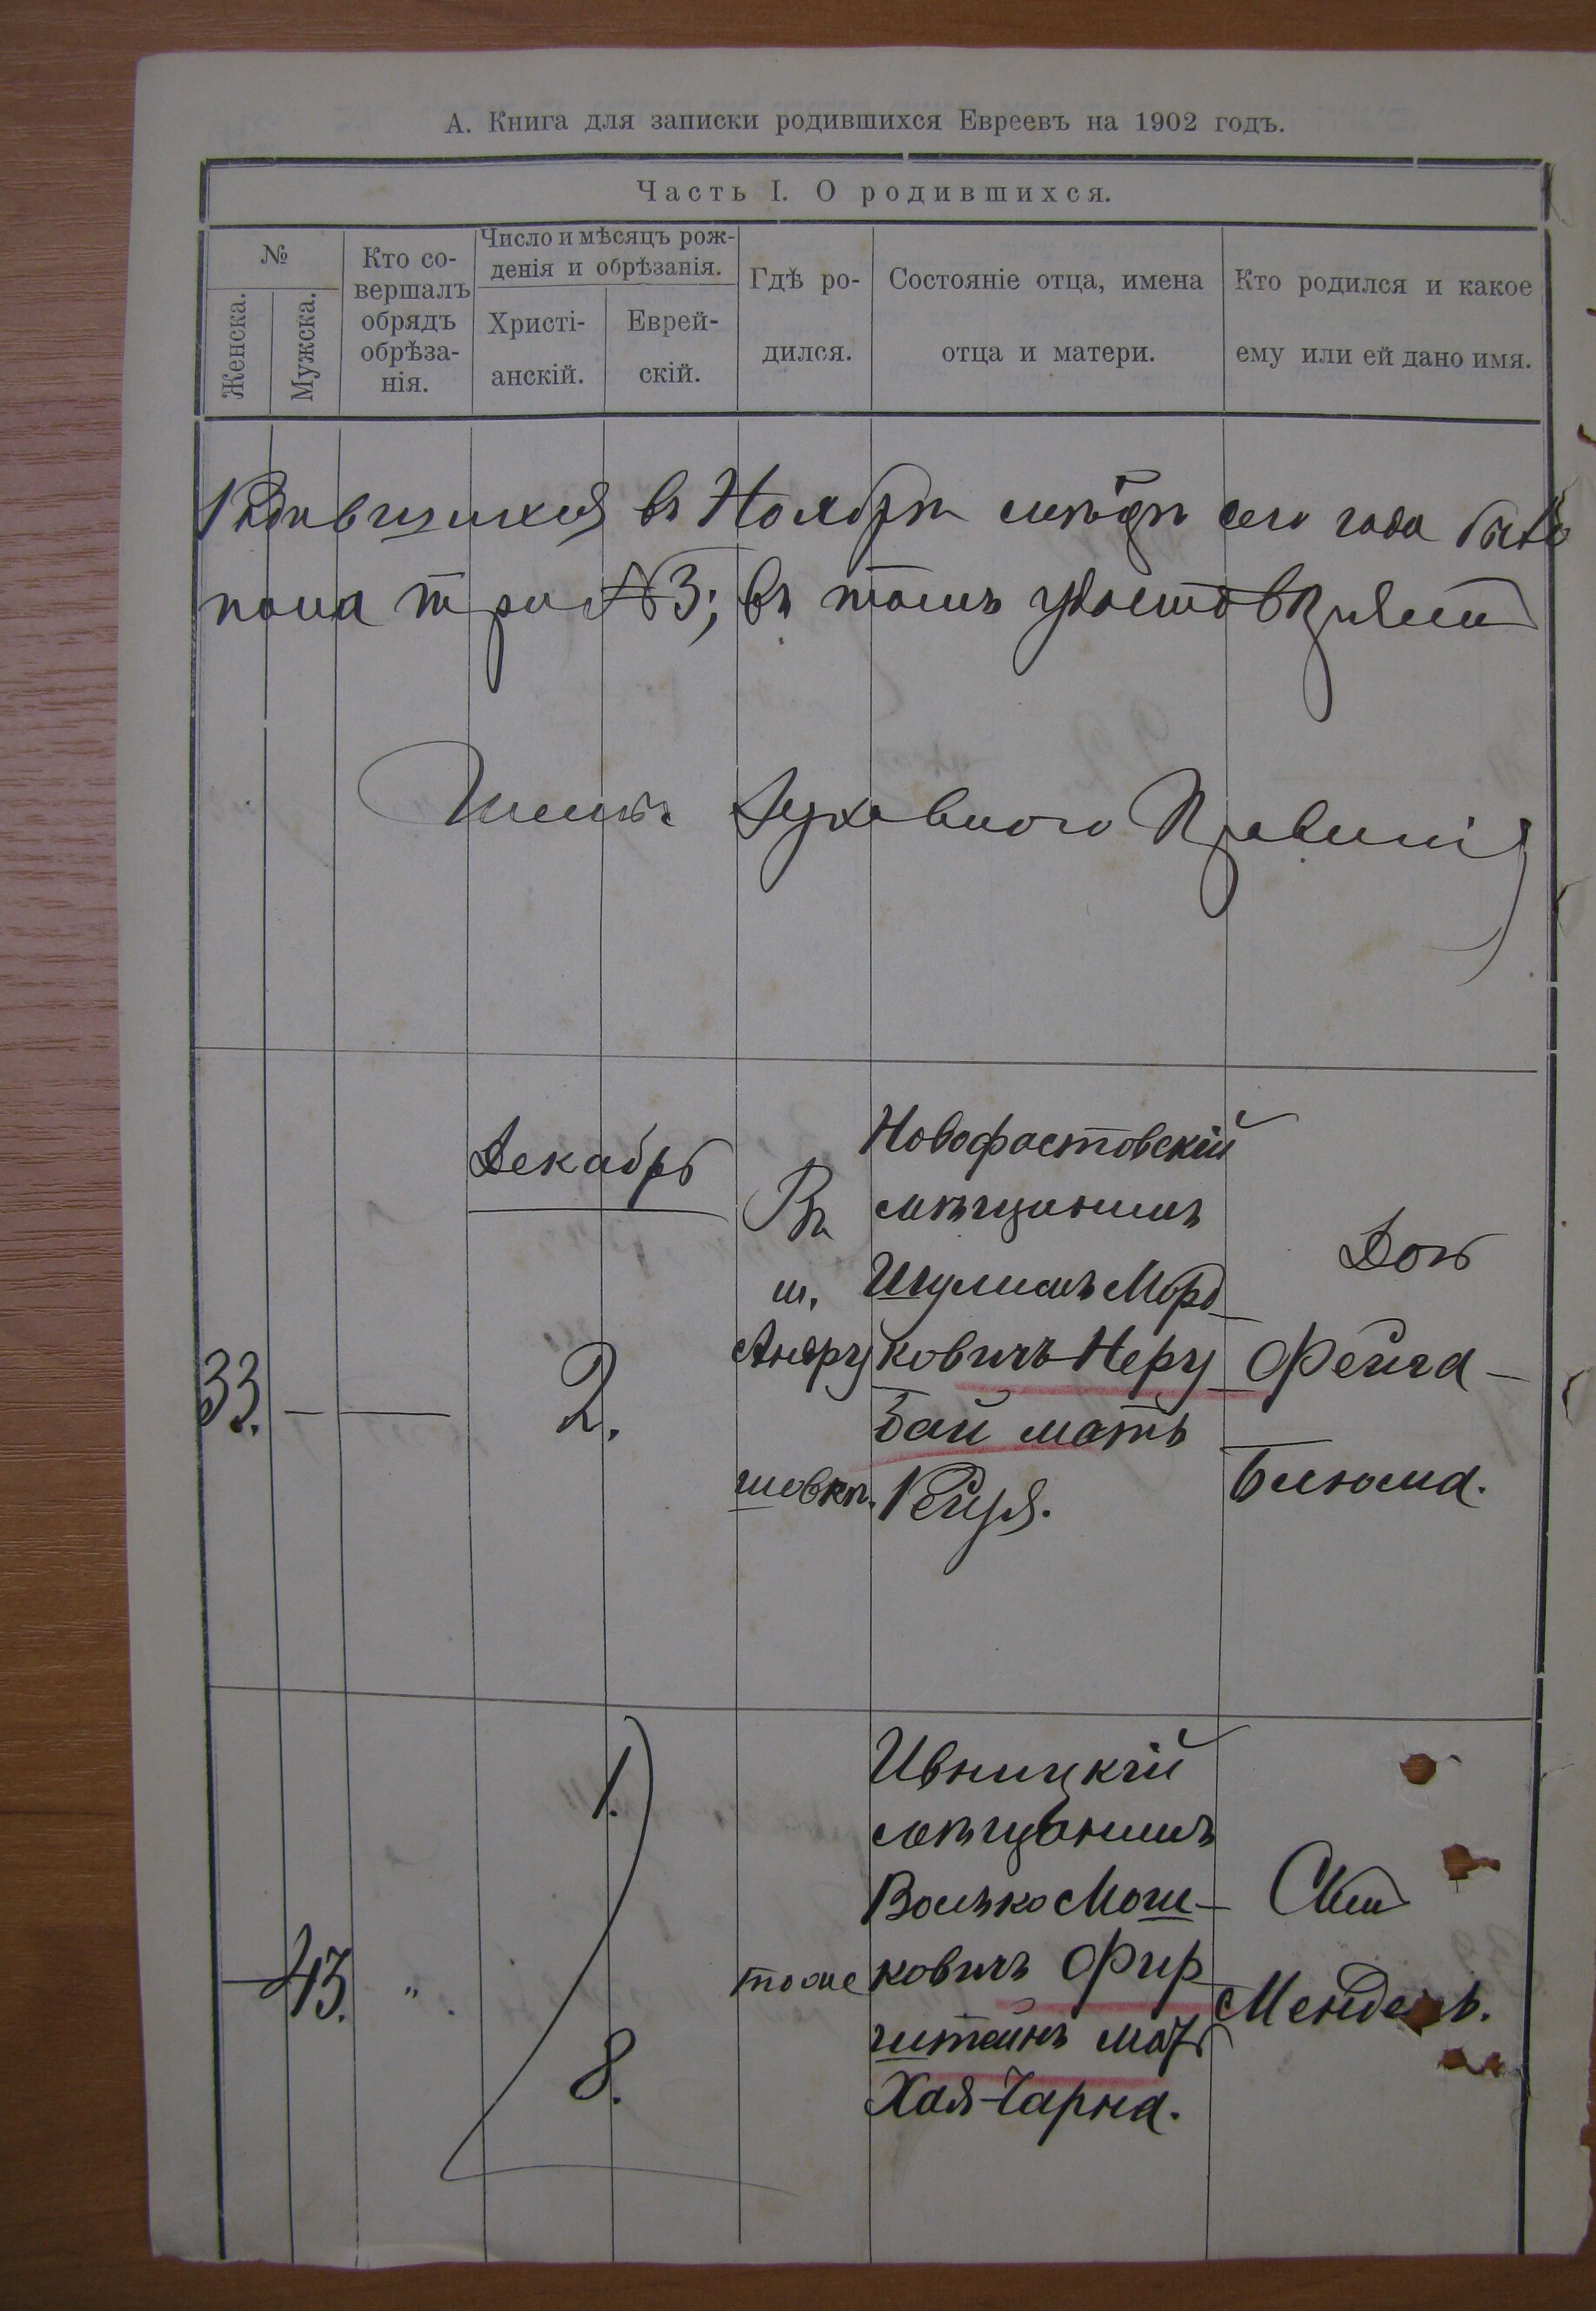 А. Книга для записки родившихся Евреевъ на 1902 годъ.
Часть I. О родившихся.
№
Женска.
Мужска.
Кто со-
вершалъ
обрядъ
обрѣза-
нія.
Число и мѣсяцъ рож-
денія и обрѣзанія.
Христі-
анскій.
Еврей-
скій.
Гдѣ ро-
дился.
Состояніе отца, имена
отца и матери.
Кто родился и какое
ему или ей дано имя.
Родившихся въ Ноябрѣ сего года
пола три № 3; въ томъ
Духовного Правленія
33.
—
—
Декабрь
2.
Въ
м.
Андру
шовкѣ.
Новофастовскій
мѣщанинъ
Шулимъ Морд
ковичъ Неру
бай мать
Рейзя.
Дочь
Фейга-
Блюма.
—
43.
"
1.
8.
тоже
Ивницкій
мѣщанинъ
Волько Мош-
ковичъ Фир
штейнъ мать
Хая-Чарна.
Сынъ
Мендель.